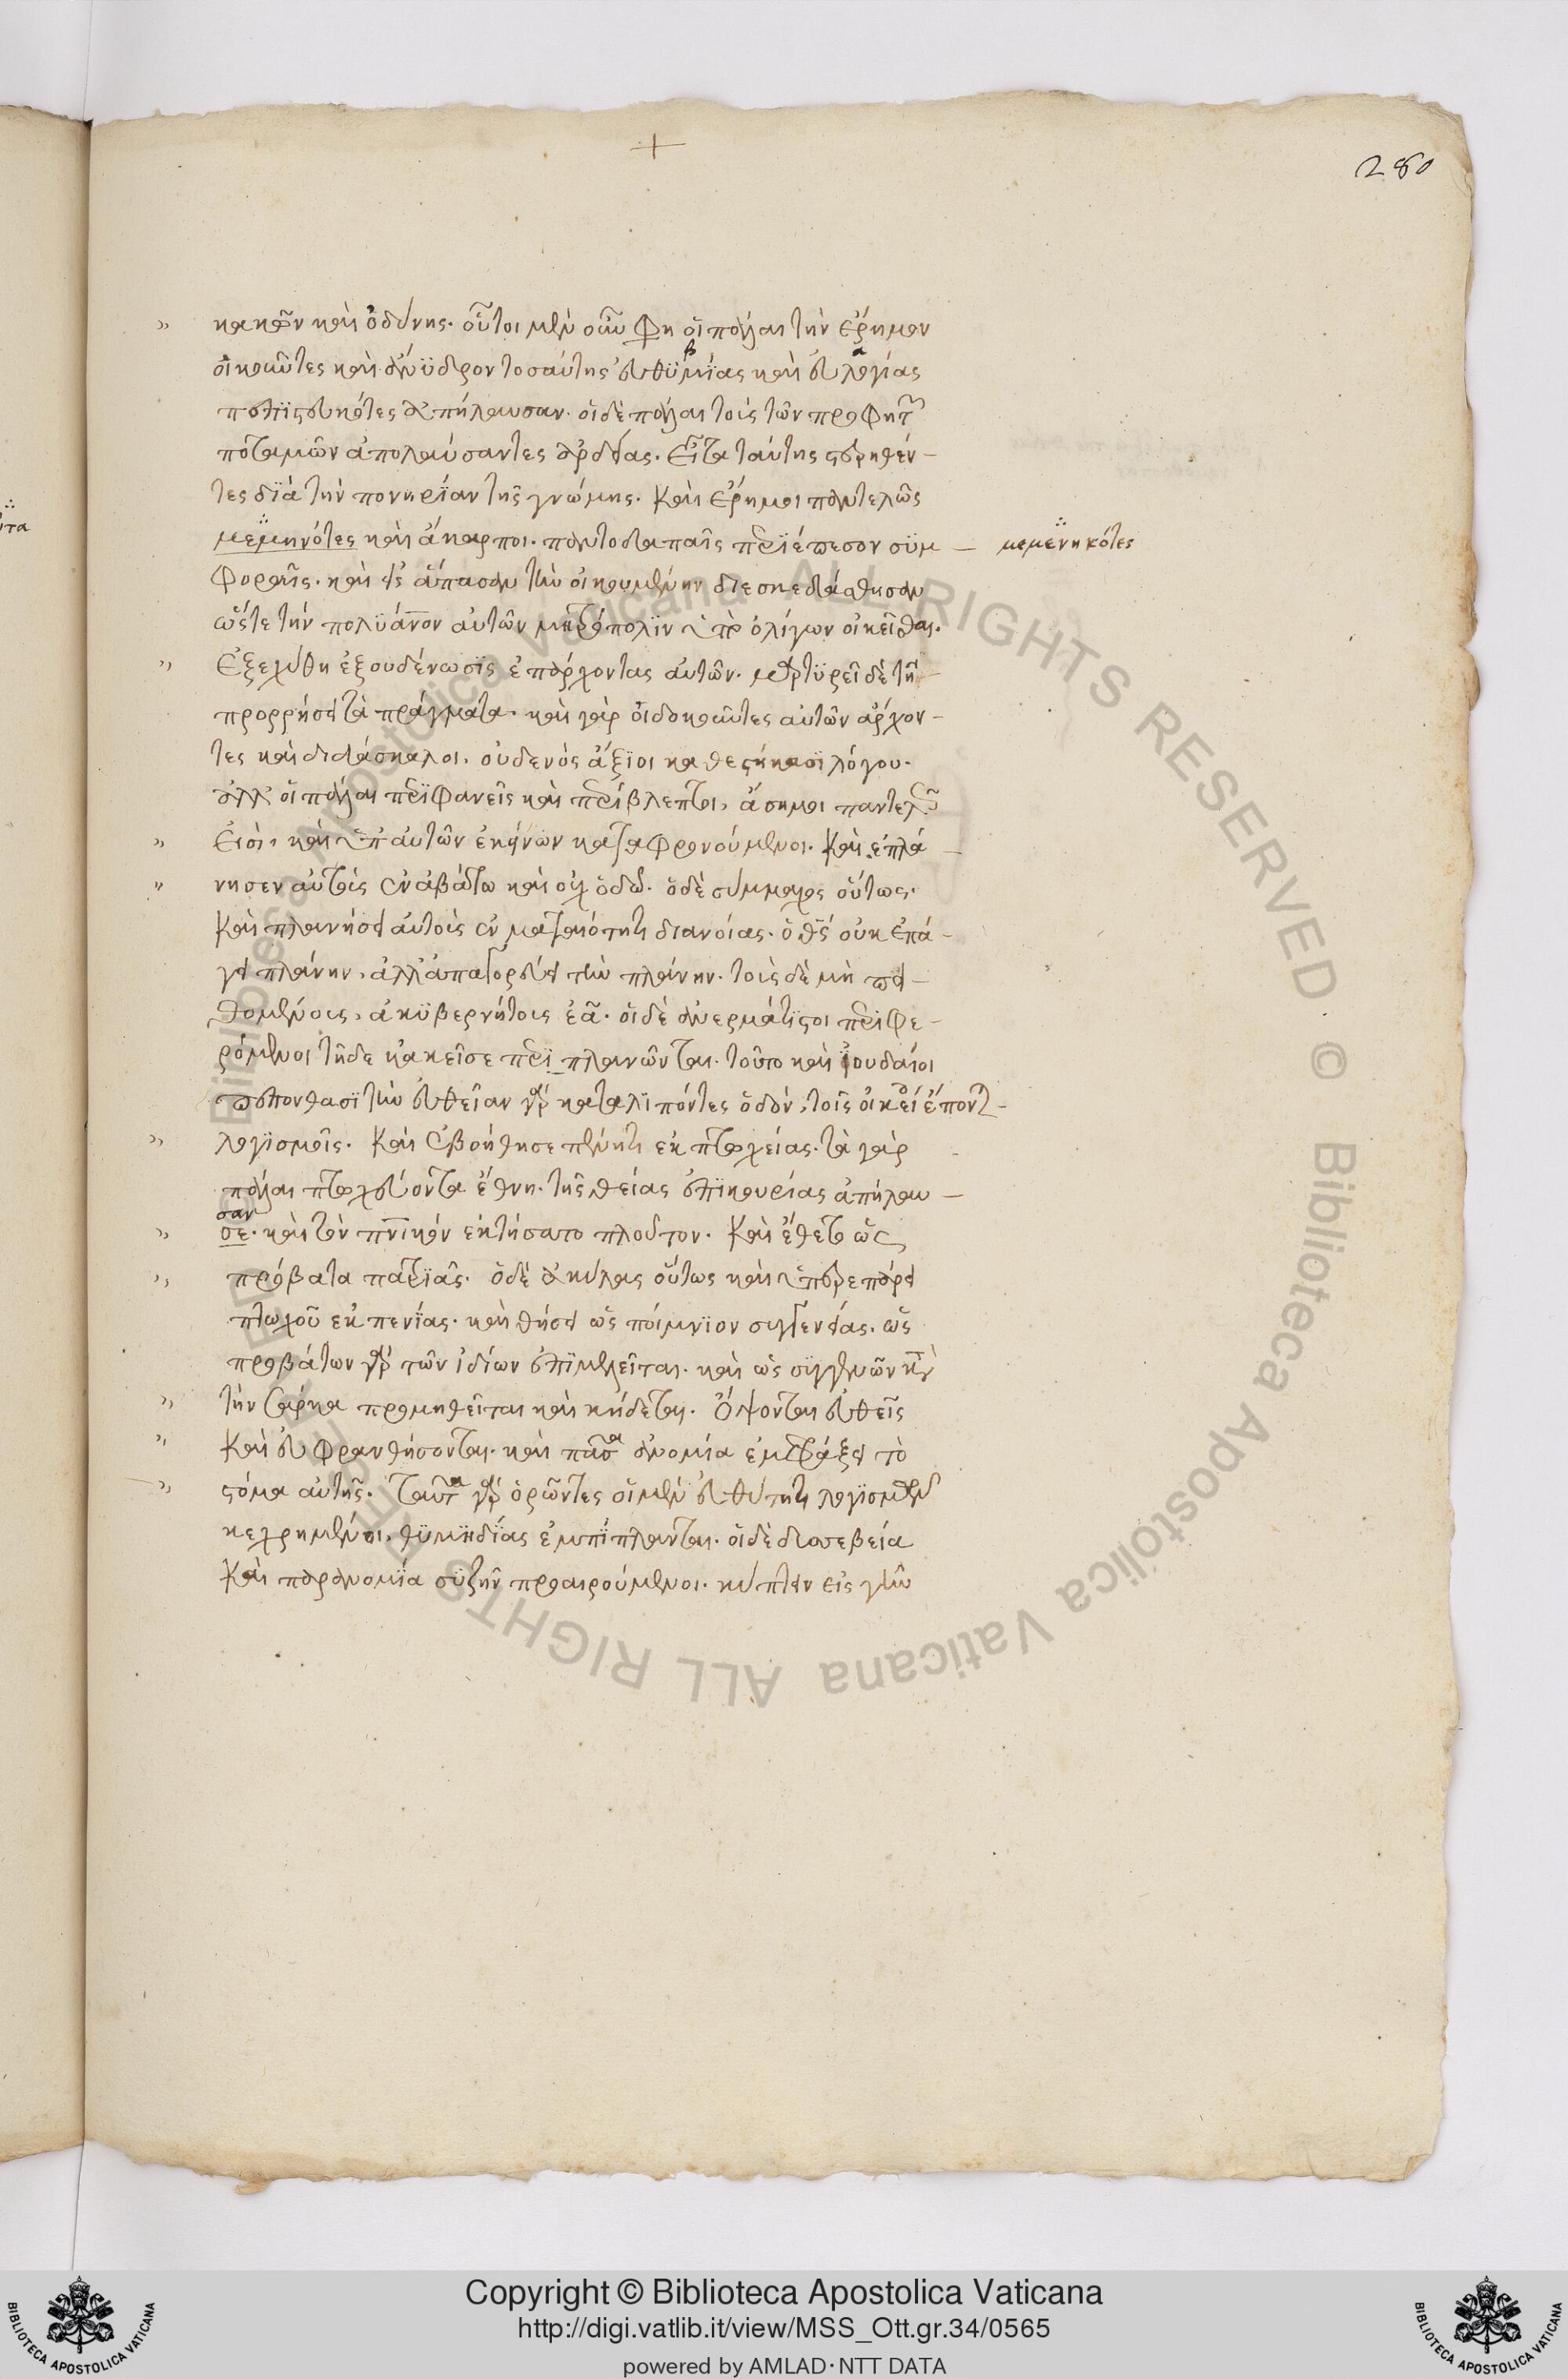 +
280
κακῶν καὶ ὀδύνης. οὗτοι μὲν οὖν φη οἱ πάλαι τὴν ἔρημον
οἰκοῦντες καὶ ἄνϋδρον τοσαύτης εὐθϋμΐας καὶ εὐλογίας
πεπϊστευκότες ἀπήλαυσαν. οἱ δὲ πάλαι τοῖς τῶν προφητ
ποταμῶν ἀπολαύσαντες ἀρδείας. εἶτα ταύτης στερηθέν-
τες δϊὰ τὴν πονηρΐαν τῆς γνώμης. καὶ ἔρημοι παντελῶς
μεμηνότες καὶ ἄκαρποι. παντοδαπαῖς περϊέπεσον σϋμ- μεμενηκότες
φοραῖς. καὶ εἰς ἅπασαν τὴν οἰκουμένην διεσκεδάσθησαν
ὥστε τὴν πολϋάνον αὐτῶν μητρόπολϊν ὑπὸ ὀλίγων οἰκεῖσθαι.
Ἐξεχύθη ἐξουδένωσϊς ἐπ ἄρχοντας αὐτῶν. μαρτϋρεῖ δὲ τῆ
προρρήσει τὰ πράγματα. καὶ γὰρ οἱ δοκοῦντες αὐτῶν ἄρχον-
τες καὶ διδάσκαλοι. οὐδενὸς ἄξϊοι καθεστήκασϊ λόγου.
ἀλλ οἱ πάλαι περϊφανεῖς καὶ περίβλεπτοι, ἄσημοι παντελῶς
εἰσὶ, καὶ ὑπ αὐτῶν ἐκείνων καταφρονούμενοι. καὶ ἐπλά-
νησεν αὐτοὺς ἐν ἀβάτω καὶ οὐχ ὁδῶ. ὁ δὲ σύμμαχος οὕτως.
καὶ πλανήσει αὐτοὺς ἐν ματαιότητι διανοίας. ὁ θς οὐκ ἐπά-
γει πλάνην, ἀλλ ἀπαγορεύει τὴν πλάνην. τοὺς δὲ μὴ πει-
θομένους, ἀκϋβερνήτους ἐᾶ. οἱ δὲ ἀνερμάτϊστοι περϊφε-
ρόμενοι τῆδε κἀκεῖσε περϊπλανῶνται. τοῦτο καὶ ϊουδαῖοι
πεπόνθασϊ τὴν εὐθεῖαν γὰρ καταλϊπόντες ὁδὸν, τοῖς οἰκείοις ἕποντ-
λογϊσμοῖς. καὶ ἐβοήθησε πένητι ἐκ πτωχείας. τὰ γὰρ
πάλαι πτωχεύοντα ἔθνη. τῆς θείας ἐπϊκουρίας ἀπήλαυ-
σαν
σε. καὶ τὸν πνικὸν ἐκτήσατο πλοῦτον. καὶ ἔθετο ὡς
πρόβατα πατρϊὰς. ὁ δὲ ἀκύλας οὕτως καὶ ὑπερεπάρει
πτωχοῦ ἐκ πενίας. καὶ θήσει ὡς ποίμνϊον συγγενείας. ὡς
προβάτων γὰρ τῶν ἰδίων ἐπϊμελεῖται. καὶ ὡς σϋγγενῶν κατὰ
τὴν σάρκα προμηθεῖται καὶ κήδεται. Ὄψονται εὐθεῖς
καὶ εὐφρανθήσονται. καὶ πᾶσα ἀνομία ἐμφράξει τὸ
στόμα αὐτῆς. ταῦτα γὰρ ὁρῶντες οἱ μὲν εὐθύτητι λογϊσμῶν
κεχρημένοι, θϋμηδίας ἐμπΐπλανται. οἱ δὲ δυσσεβεία
καὶ παρανομΐα σϋζῆν προαιρούμενοι. κύπτειν εἰς γῆν
Copyright © Biblioteca Apostolica Vaticana
http://digi.vatlib.it/view/MSS_Ott.gr.34/0565
powered by AMLAD·NTT DATA